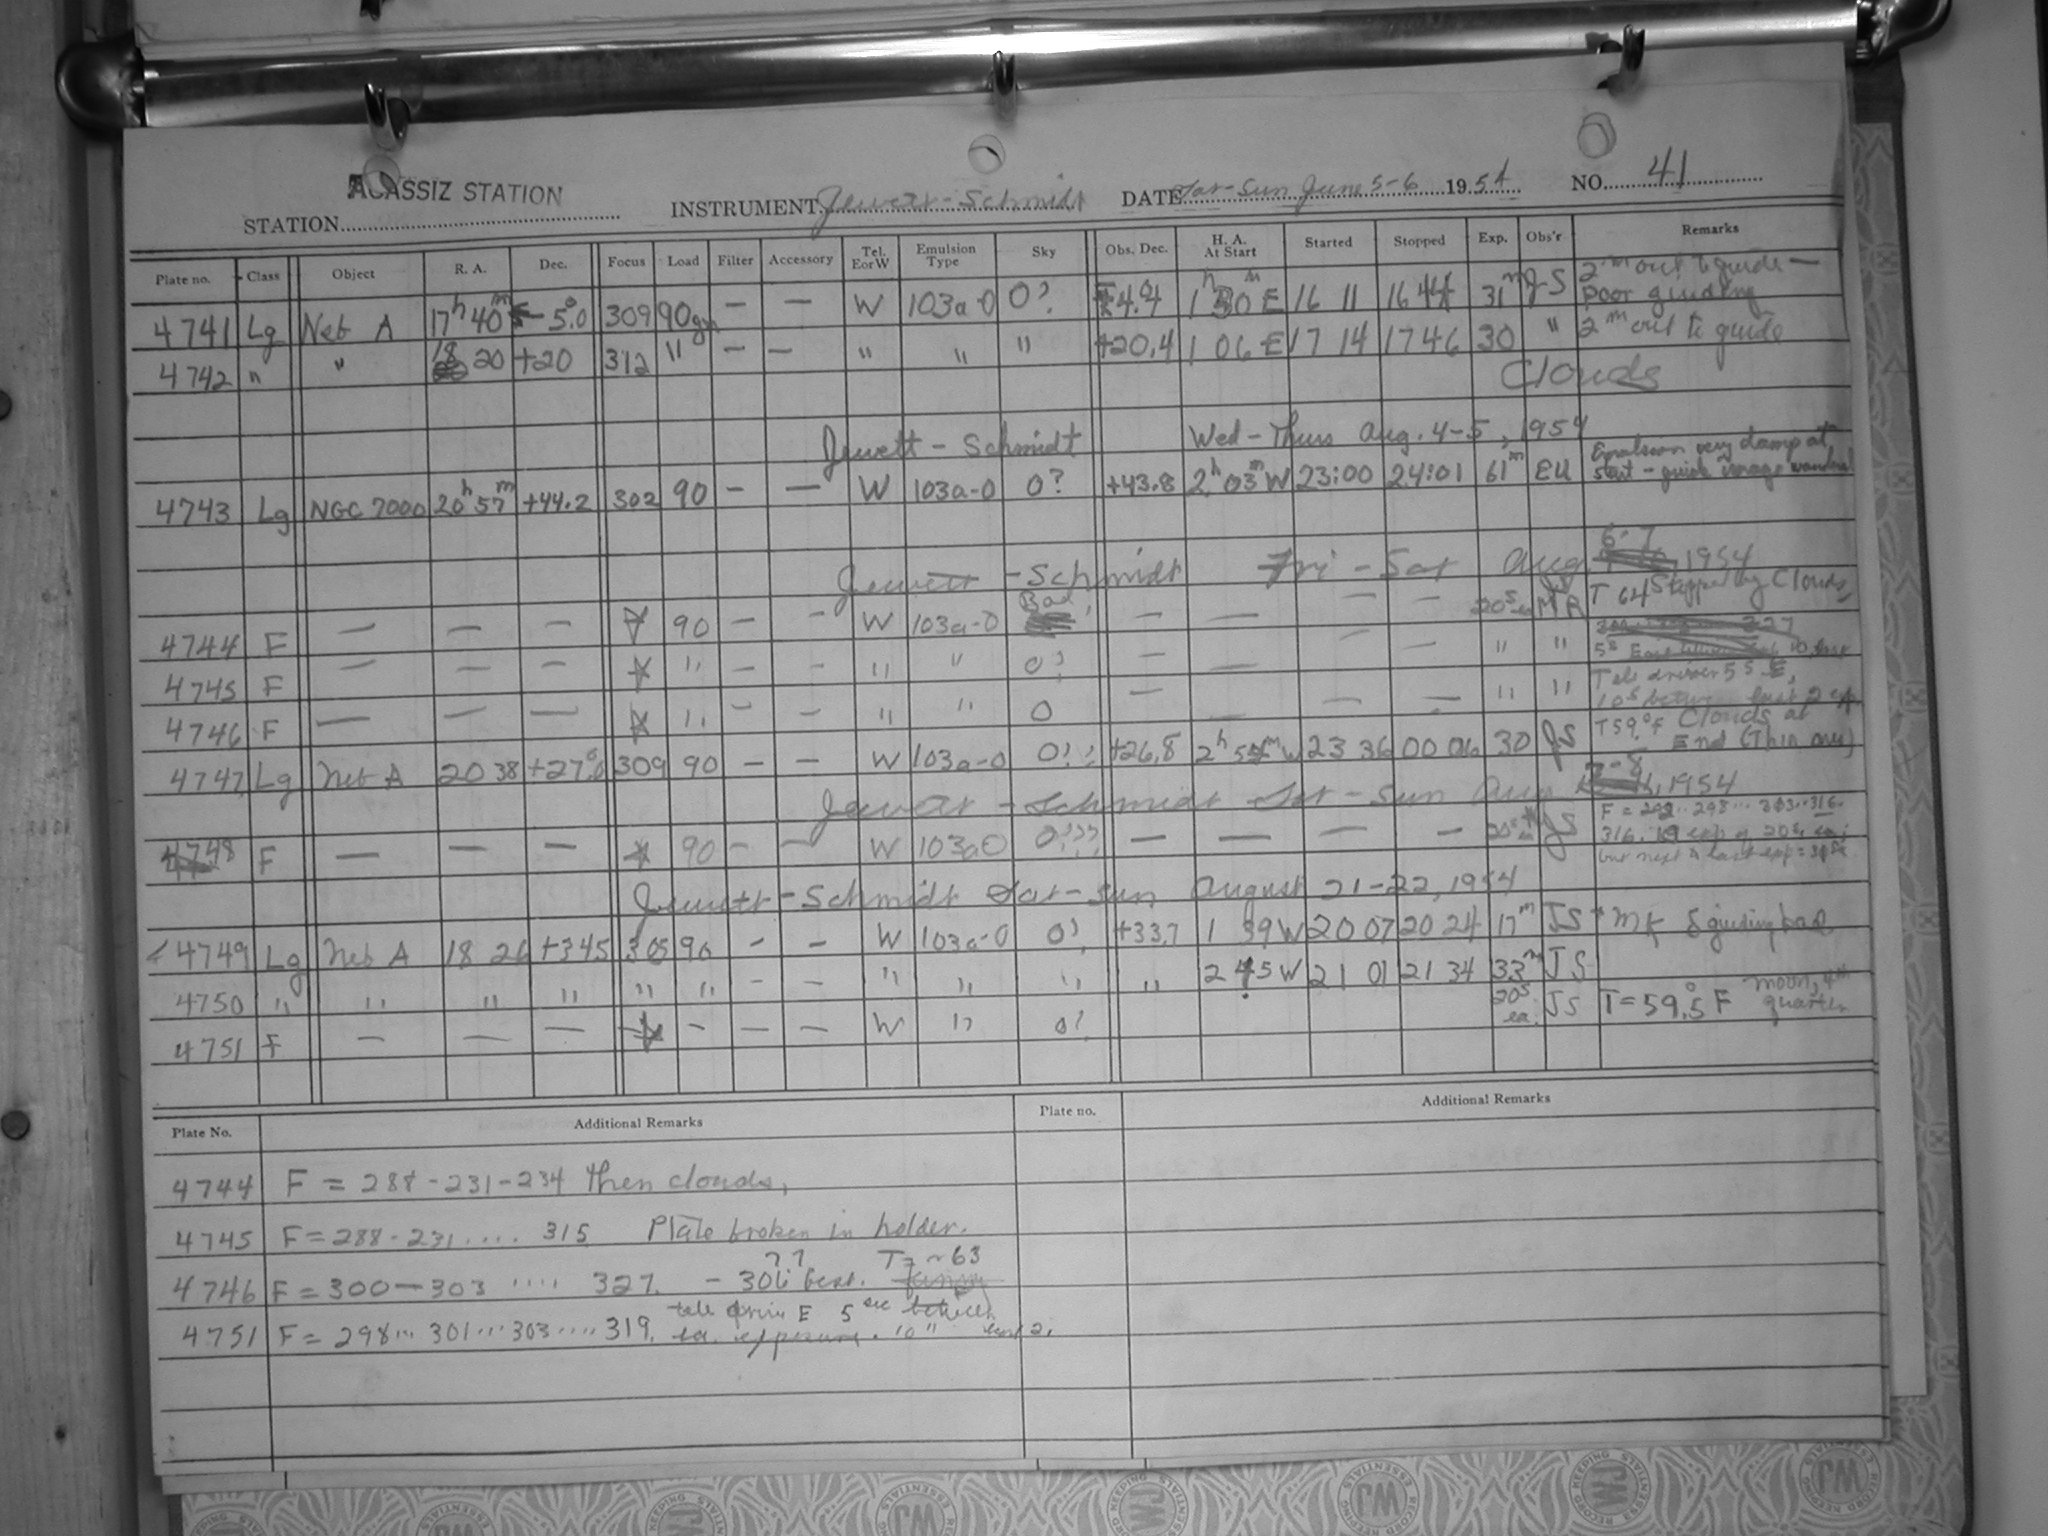 AGASSIZ STATION
STATION INSTRUMENT Jewett-Schmidt DATE Sat-Sun June 5-6 1954 NO. 41
Plate no. Class Object R. A. Dec. Focus Load Filter Accessory Tel. E or W Emulsion Type Sky Obs. Dec. H. A. At Start Started Stopped Exp. Obs'r Remarks
4741 Lg Neb A 17h 40m -5.0° 309 90 — — W 103a-O O? 4.4 1h 30m E 16 11 16 44 31m JS 2m out to guide — poor guiding
4742 " " 18 20 +20 312 " — — " " " +20.4 1 06 E 17 14 17 46 30 " 2m out to guide
Clouds
Jewett-Schmidt Wed-Thurs Aug. 4-5, 1954
4743 Lg NGC 7000 20h 57m +44.2 302 90 — — W 103a-O O? +43.8 2h 03m W 23:00 24:01 61m EU Emulsion very damp at start - guide image wandered
Jewett-Schmidt Fri-Sat Aug 6-7 1954
4744 F — — — 90 — — W 103a-O Bad — — — — 20s ea MR T 64 Stopped by Clouds
4745 F — — — " — — " " O? — — — — " "
4746 F — — — " — — " " O — — — — " " 5s E, 10s between last 2 exp
4747 Lg Neb A 20 38 +27.0° 309 90 — — W 103a-O O?? +26.8 2h 54m W 23 36 00 06 30 JS T 59°F Clouds at End (Thin ones)
Jewett-Schmidt Sat-Sun Aug 7-8, 1954
4748 F — — — 90 — — W 103aO O??? — — — — 20s ea JS F = 292.. 298... 303..316.
316. 19 exp of 20s ea;
but next to last exp =
Jewett-Schmidt Sat-Sun August 21-22, 1954
4749 Lg Neb A 18 26 +34.5 305 90 — — W 103a-O O? +33.7 1 39 W 20 07 20 24 17m JS + MK guiding bad
4750 " " " " " " — — " " " " 2 45 W 21 01 21 34 33m JS
4751 F — — — — — — W " O? 20s ea. JS T = 59.5°F moon, 4th quarter
Plate No. Additional Remarks Plate no. Additional Remarks
4744 F = 288-231-234 then clouds,
4745 F = 288-231.... 315 Plate broken in holder.
4746 F = 300—303 .... 327. — 306?? best. T= ~63
4751 F = 298... 301...303....319. tele drive E 5 sec between ea. exposure. 10" last 2.